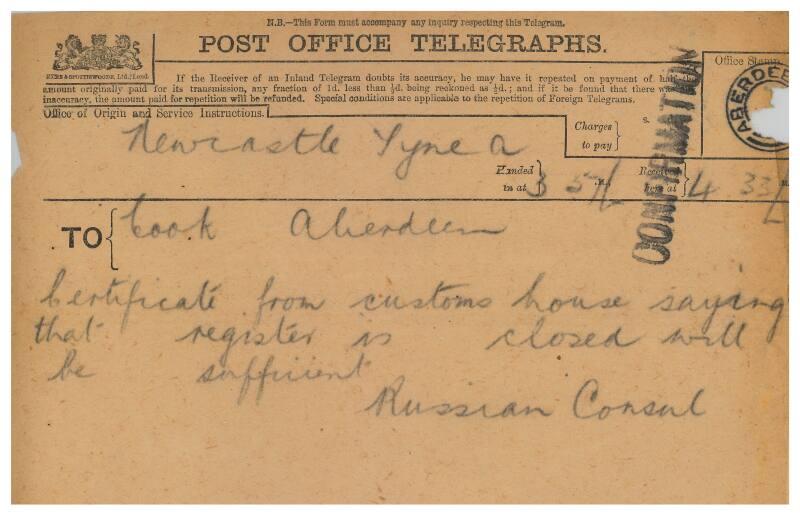 N.B.—This Form must accompany any inquiry respecting this Telegram.
POST OFFICE TELEGRAPHS.
EYRE & SPOTTISWOODE, Ltd., Lond.
Office Stamp.
If the Receiver of an Inland Telegram doubts its accuracy, he may have it repeated on payment of half the
amount originally paid for its transmission, any fraction of 1d. less than ½d. being reckoned as ½d.; and if it be found that there was
inaccuracy, the amount paid for repetition will be refunded. Special conditions are applicable to the repetition of Foreign Telegrams.
ABERDEE
Office of Origin and Service Instructions.
Charges to pay
s.
CONFIRMATION
Newcastle Tyne
Handed in at 3 5 .M.,
Received here at 4 33 M.
TO Cook Aberdeen
Certificate from customs house saying
that register is closed will
be sufficient
Russian Consul